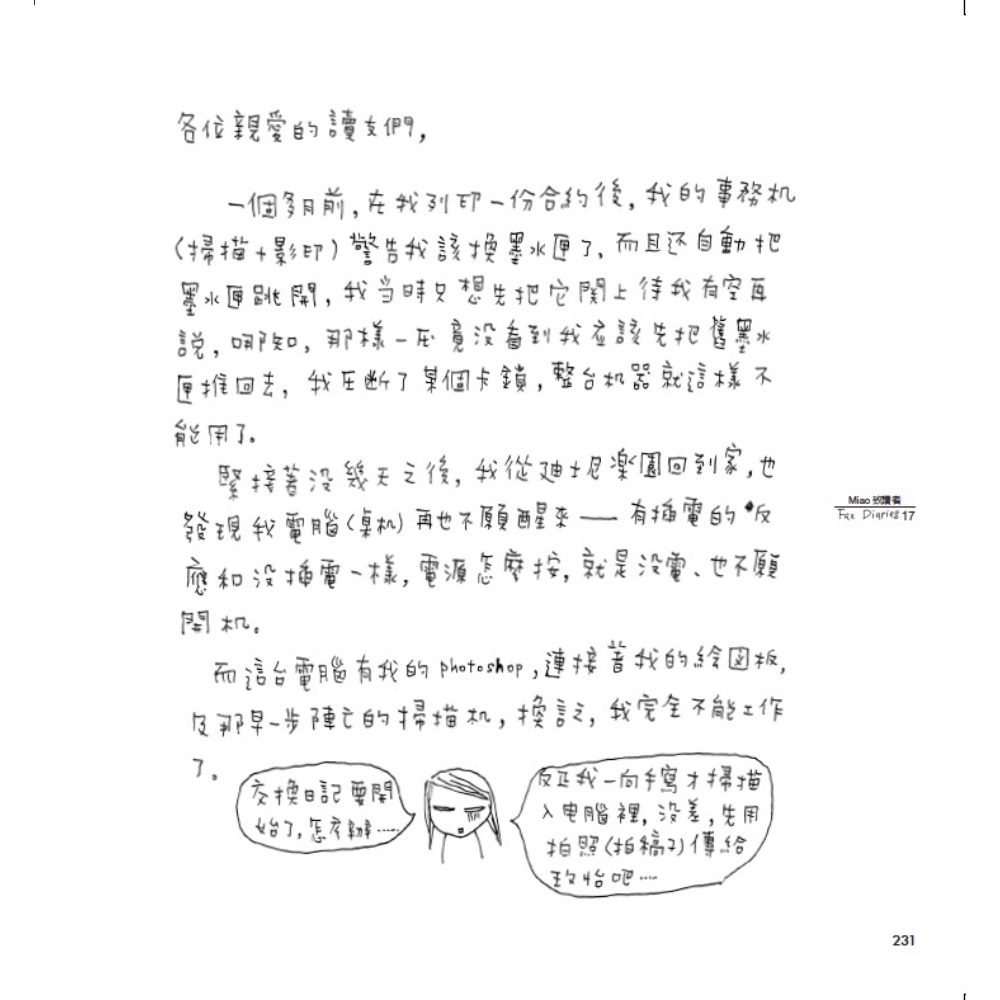 各位親愛的讀友們,
一個多月前,在我列印一份合約後,我的事務机
(掃描+影印)警告我該換墨水匣了、而且还自動把
墨水匣跳開,我当時只想先把它関上待我有空再
說,哪知,那樣一压竟没看到我应該先把舊墨水
匣推回去,我压断了某個卡鎖,整台机器就這樣不
能用了。
緊接著没幾天之後,我從迪士尼楽園回到家,也
發現我電腦(桌机)再也不願醒來——有插電的反
應和没插電一樣,電源怎麼按,就是没電、也不願
開机。
而這台電腦有我的photoshop,連接著我的繪図板,
及那早一步陣亡的掃描机,換言之,我完全不能工作
了。
交換日記要開
始了,怎麼辦……
反正我一向手寫才掃描
入电腦裡,没差,先用
拍照(拍稿子)傳給
玫怡吧……
Miao 致讀者
Fax Diaries 17
231